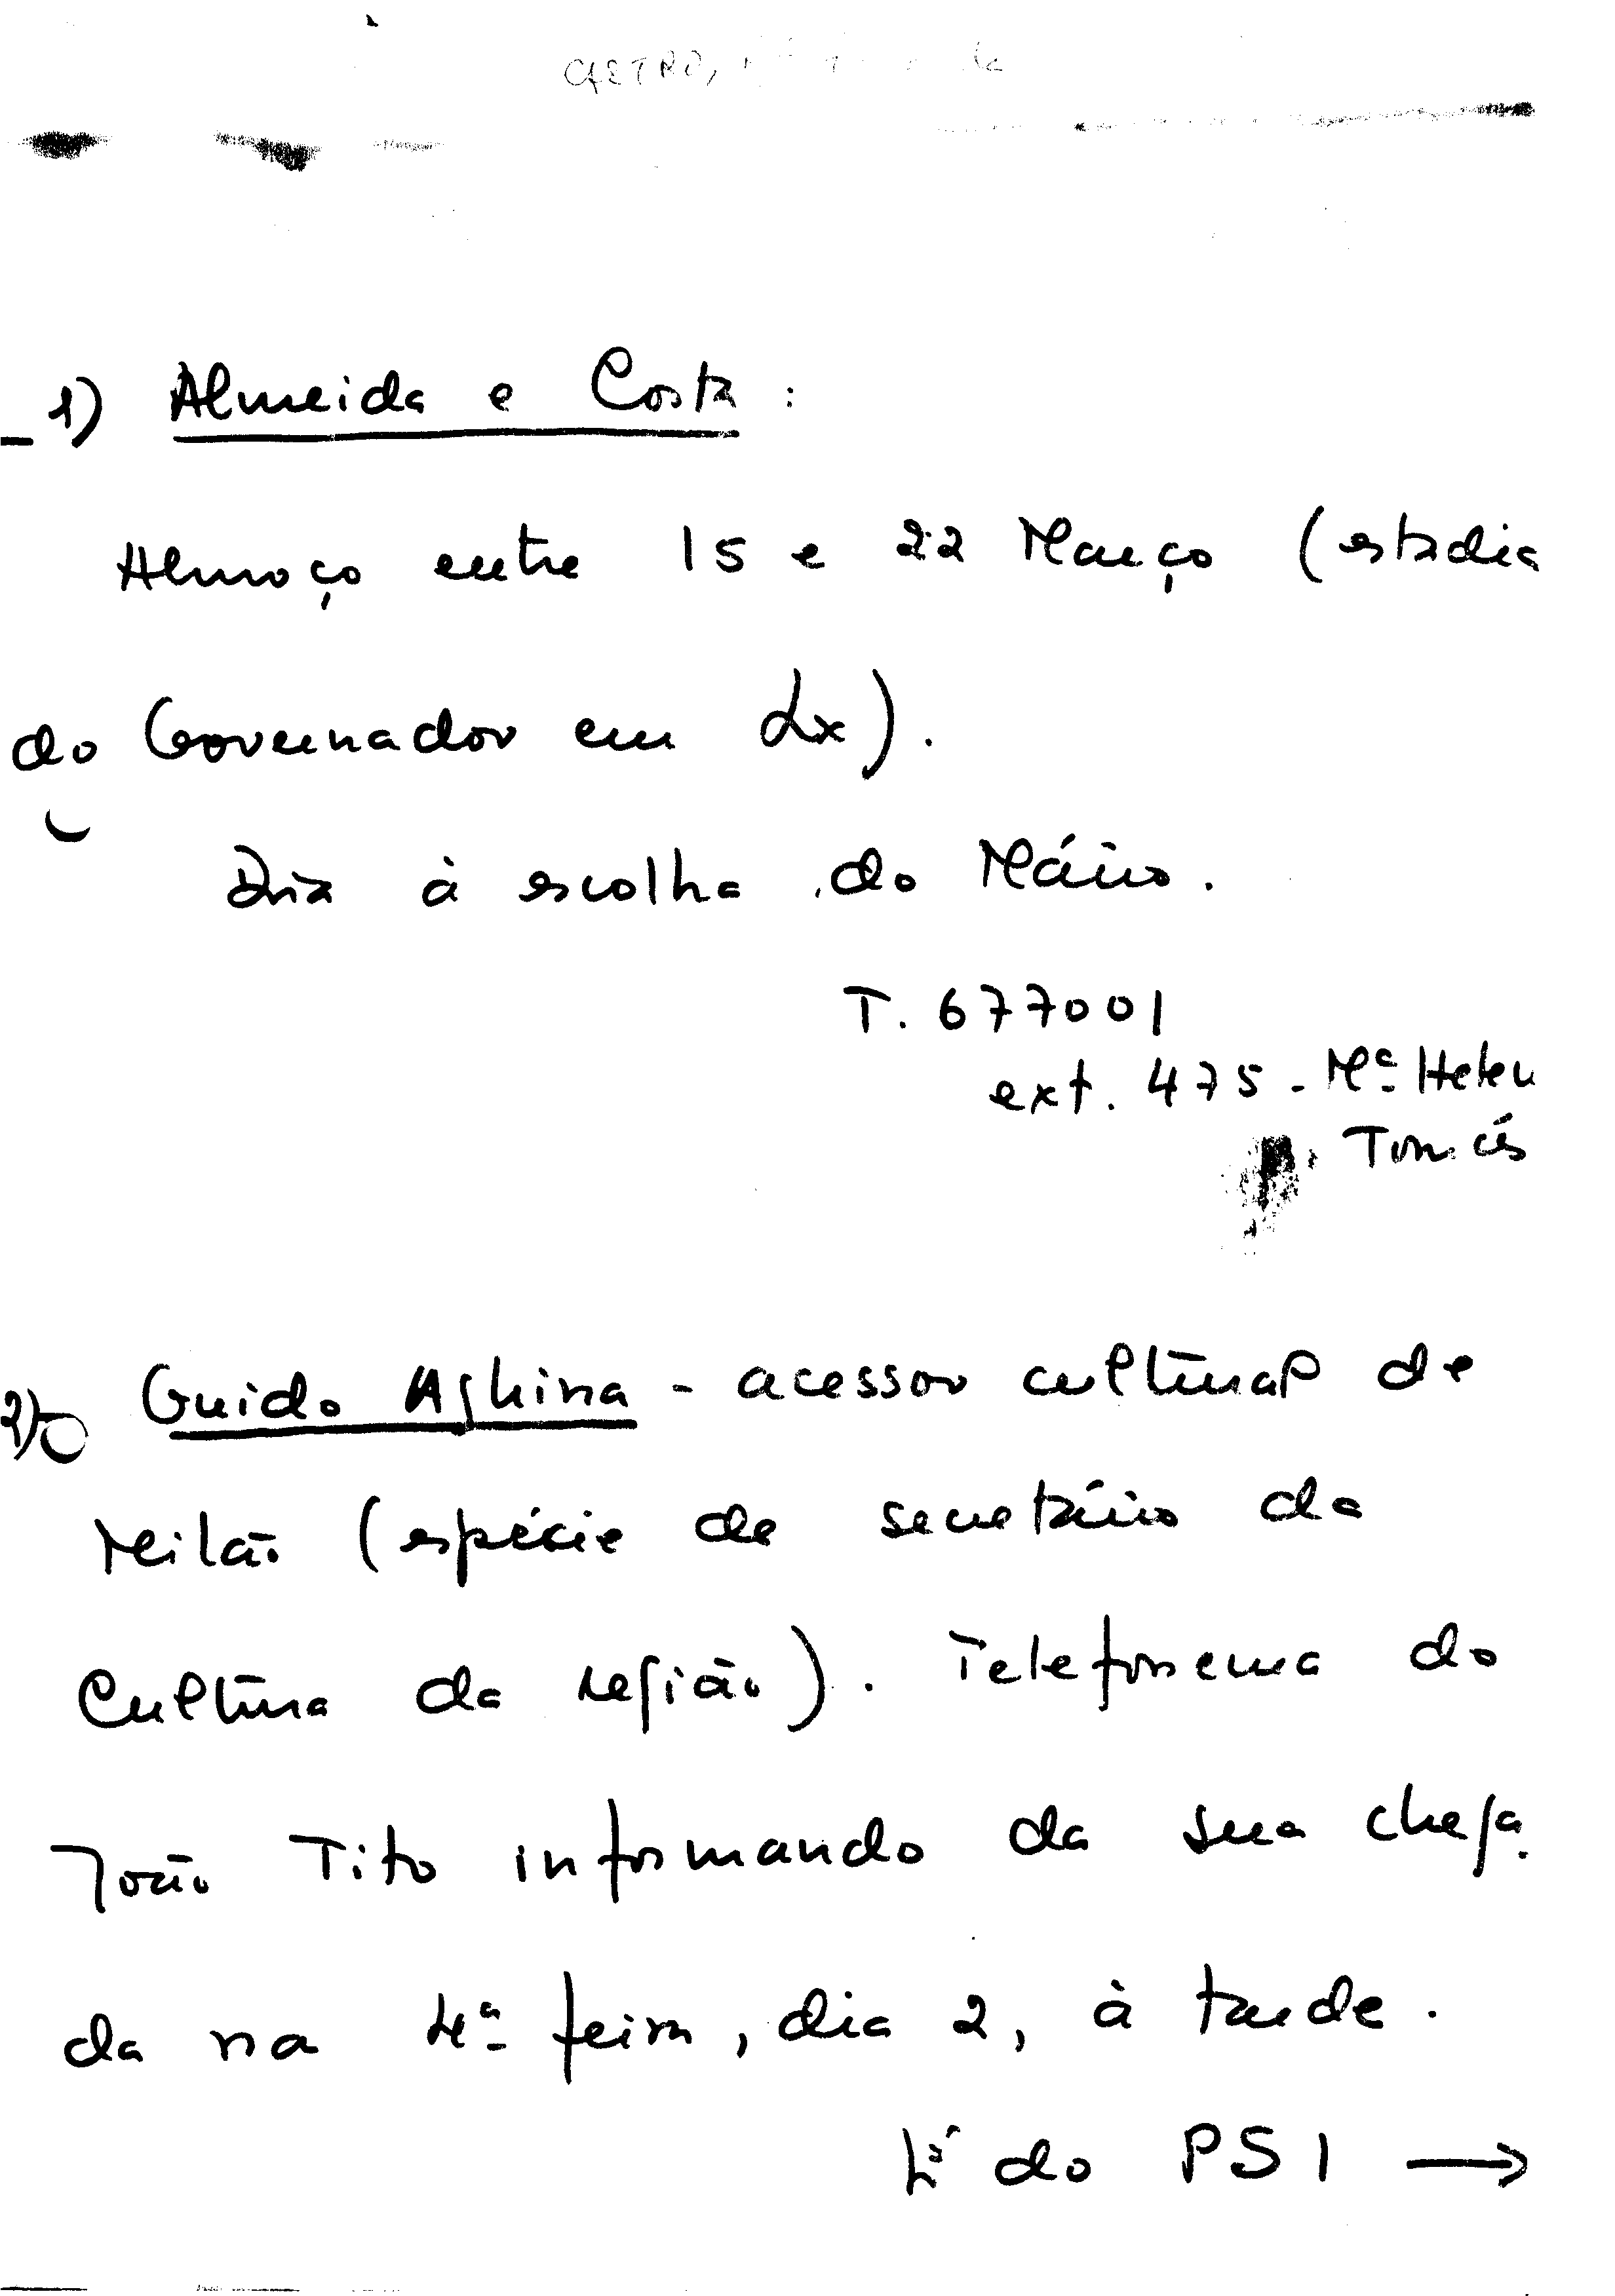 CASTRO,
1) Almeida e Costa :
Almoço entre 15 e 22 Março (estadia
do Governador em Lx).
Dia à escolha do Mário.
T. 677001
ext. 475 - Mª Helen
Tomás
2) Guido Aghina - acessor cultural de
Milão (espécie de secretário da
Cultura da região). Telefonema do
João Tito informando da sua chega.
da na 4ª feira, dia 2, à tarde.
É do PSI →